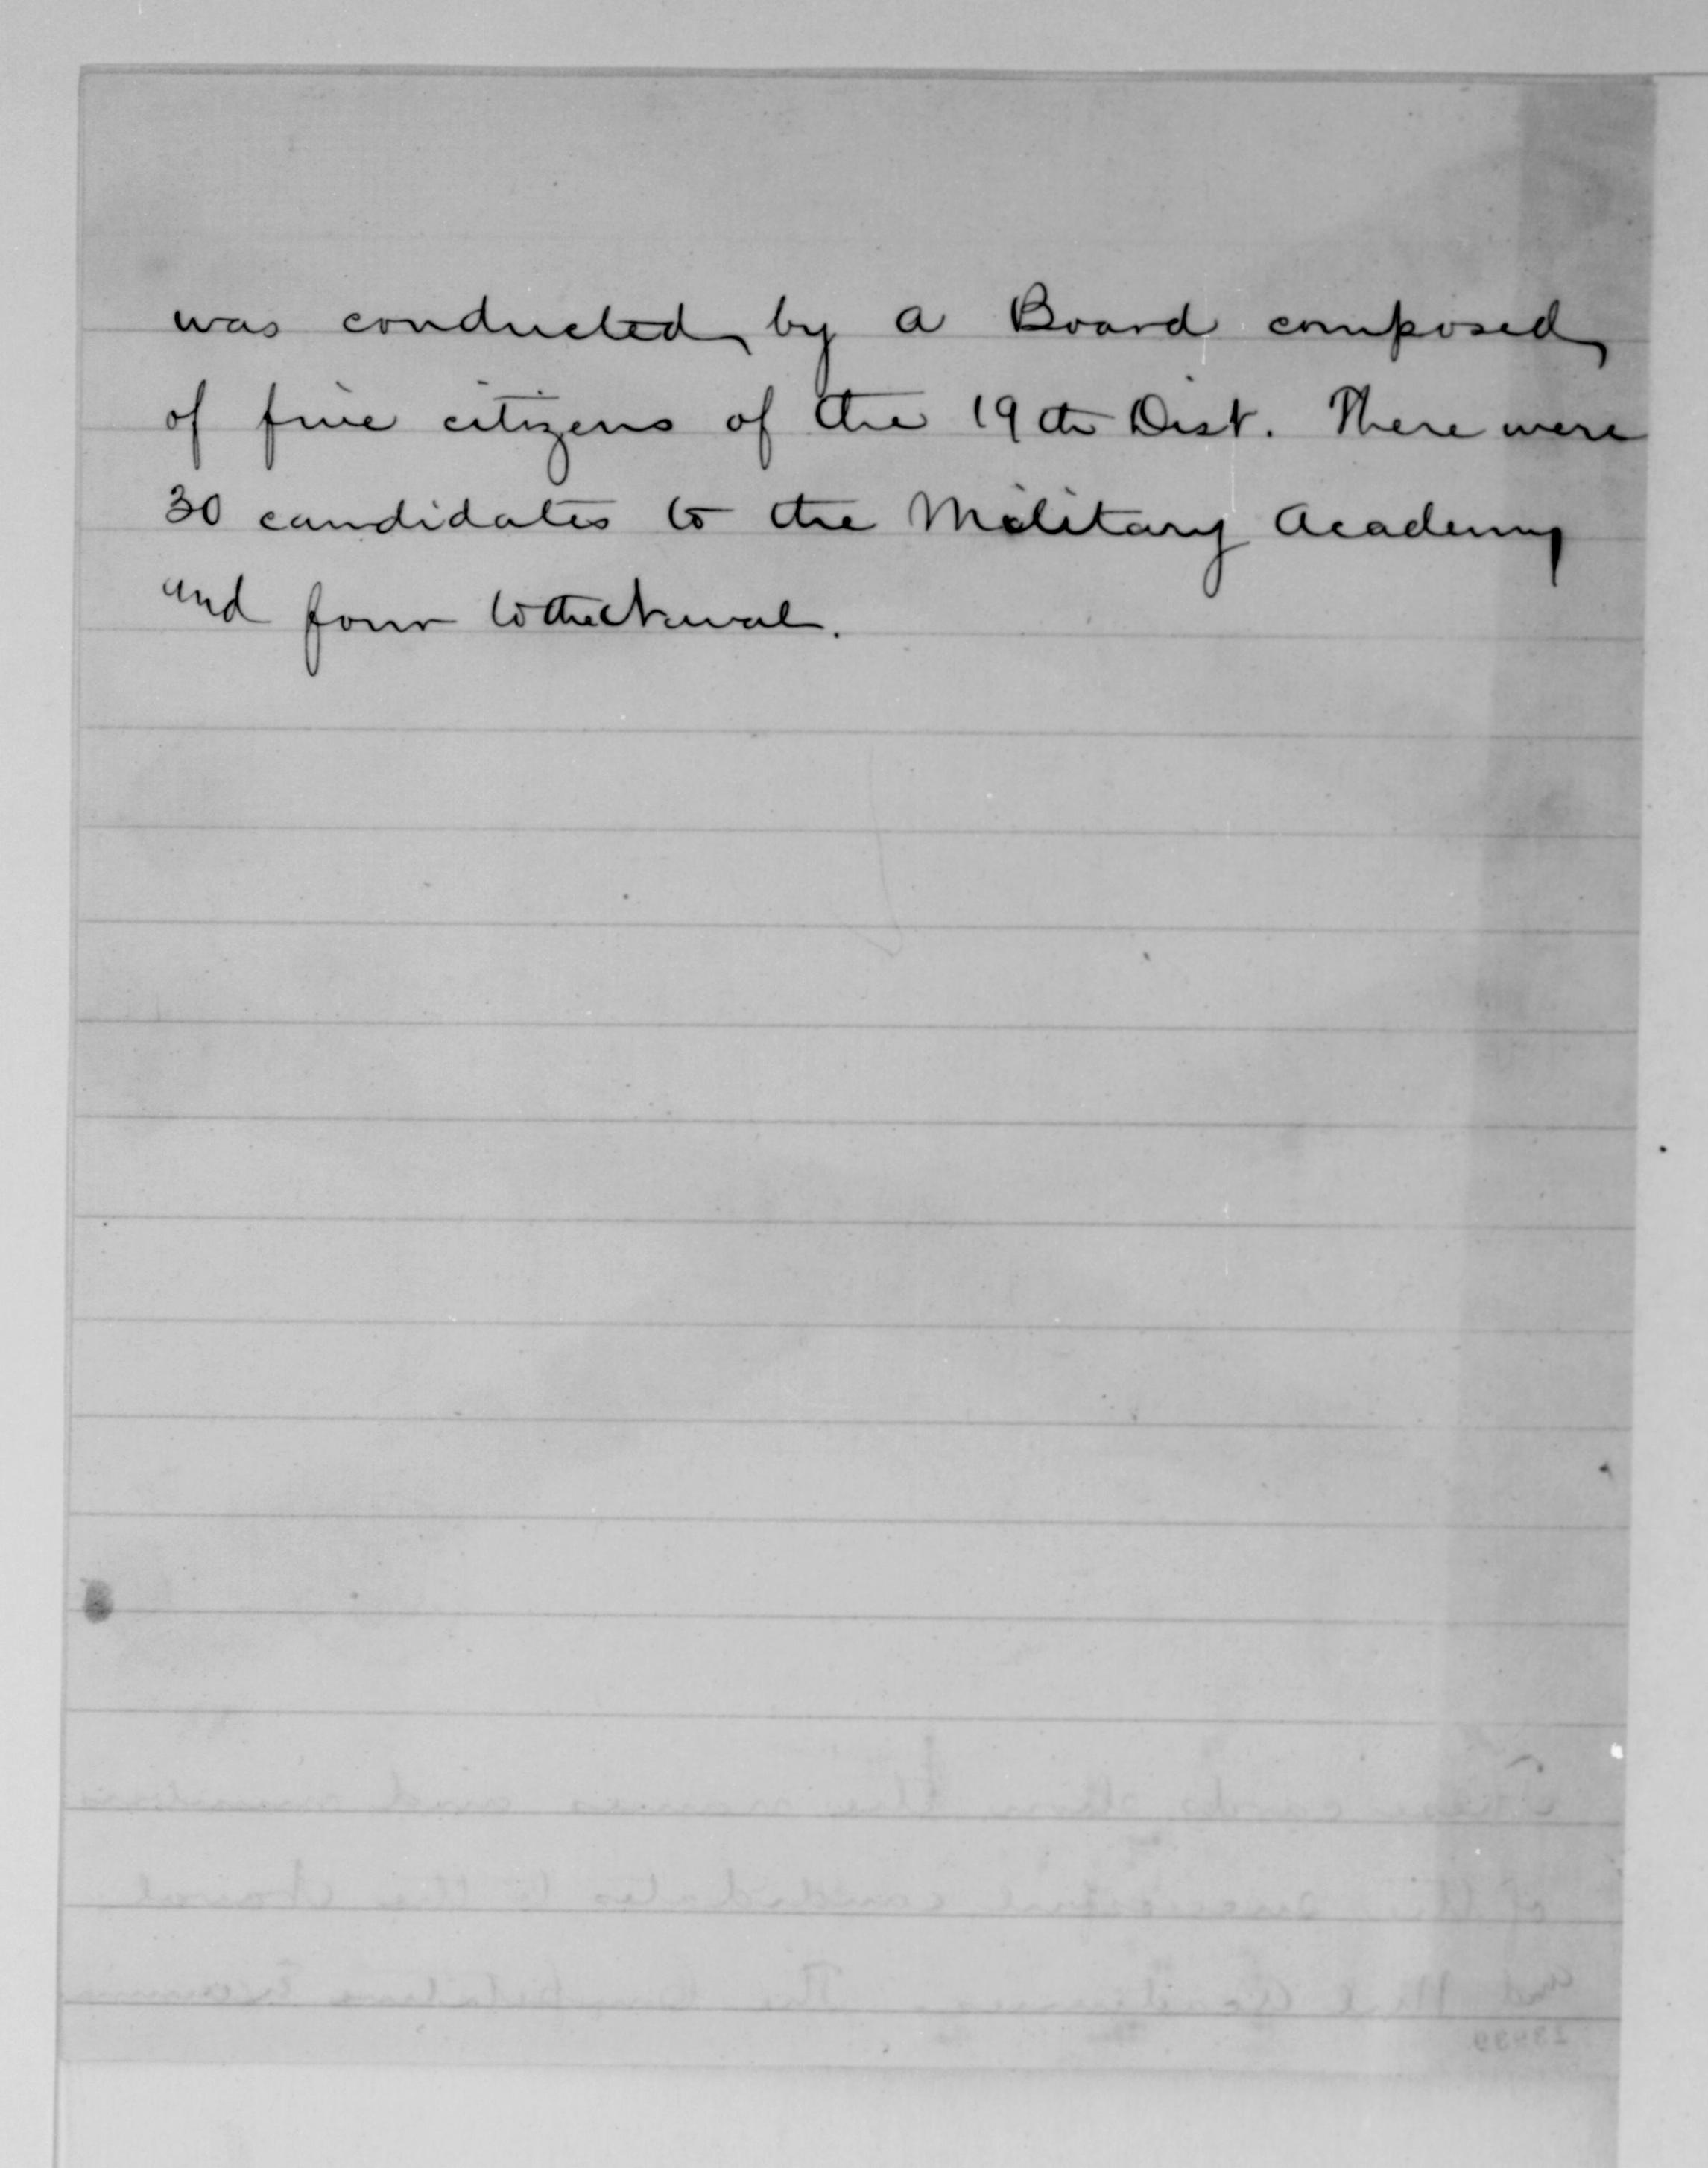 was conducted by a Board composed
of five citizens of the 19th Dist. There were
30 candidates to the Military Academy
and four to the Naval.